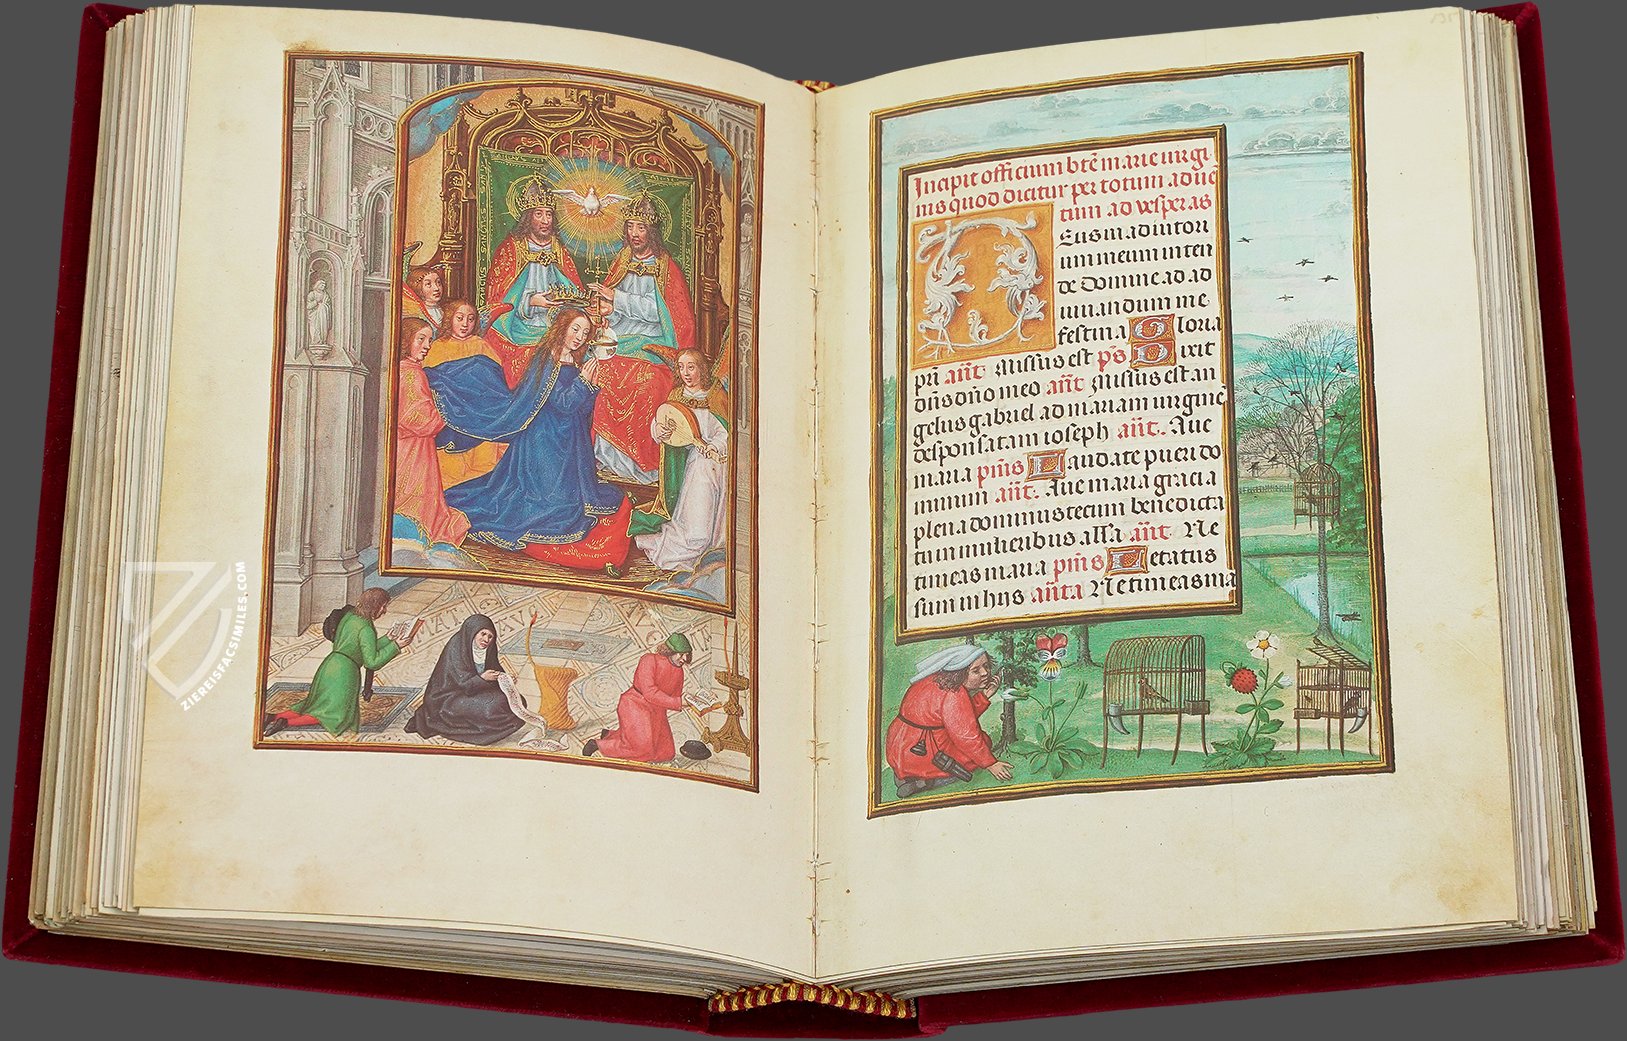 Incipit officium btē marie uirgi
nis quod dicitur per totum aduē
tum ad vesperas
Deus in adiutori
um meum inten
de Domine ad ad
iuuandum me
festina Gloria
pri añt Missus est ps Dixit
dñs dño meo añt Missus est an
gelus gabriel ad mariam uirginē
desponsatam ioseph añt. Aue
maria pm̄s Laudate pueri do
minum añt. Aue maria gracia
plena dominus tecum benedicta
tu in mulieribus alla añt Ne
timeas maria pm̄s Letatus
sum in hijs añta Ne timeas ma
ZIEREISFACSIMILES.COM